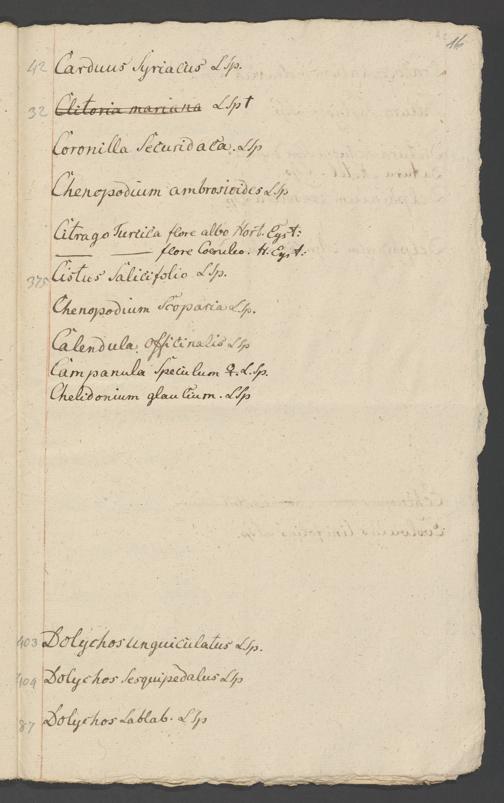 16
42 Carduus Syriacus LSp.
32 Clitoria mariana LSp†
Coronilla Securidaca. LSp
Chenopodium ambrosioides LSp
Citrago Turcica flore albo Hort. Eyst:
— — flore Coeruleo. H. Eyst:
375 Cistus Salicifolio LSp.
Chenopodium Scoparia LSp.
Calendula officinalis LSp
Campanula Speculum ♀. LSp.
Chelidonium glaucium. LSp
403 Dolychos unguiculatus LSp.
404 Dolychos Sesquipedalus LSp
87 Dolychos Lablab. LSp